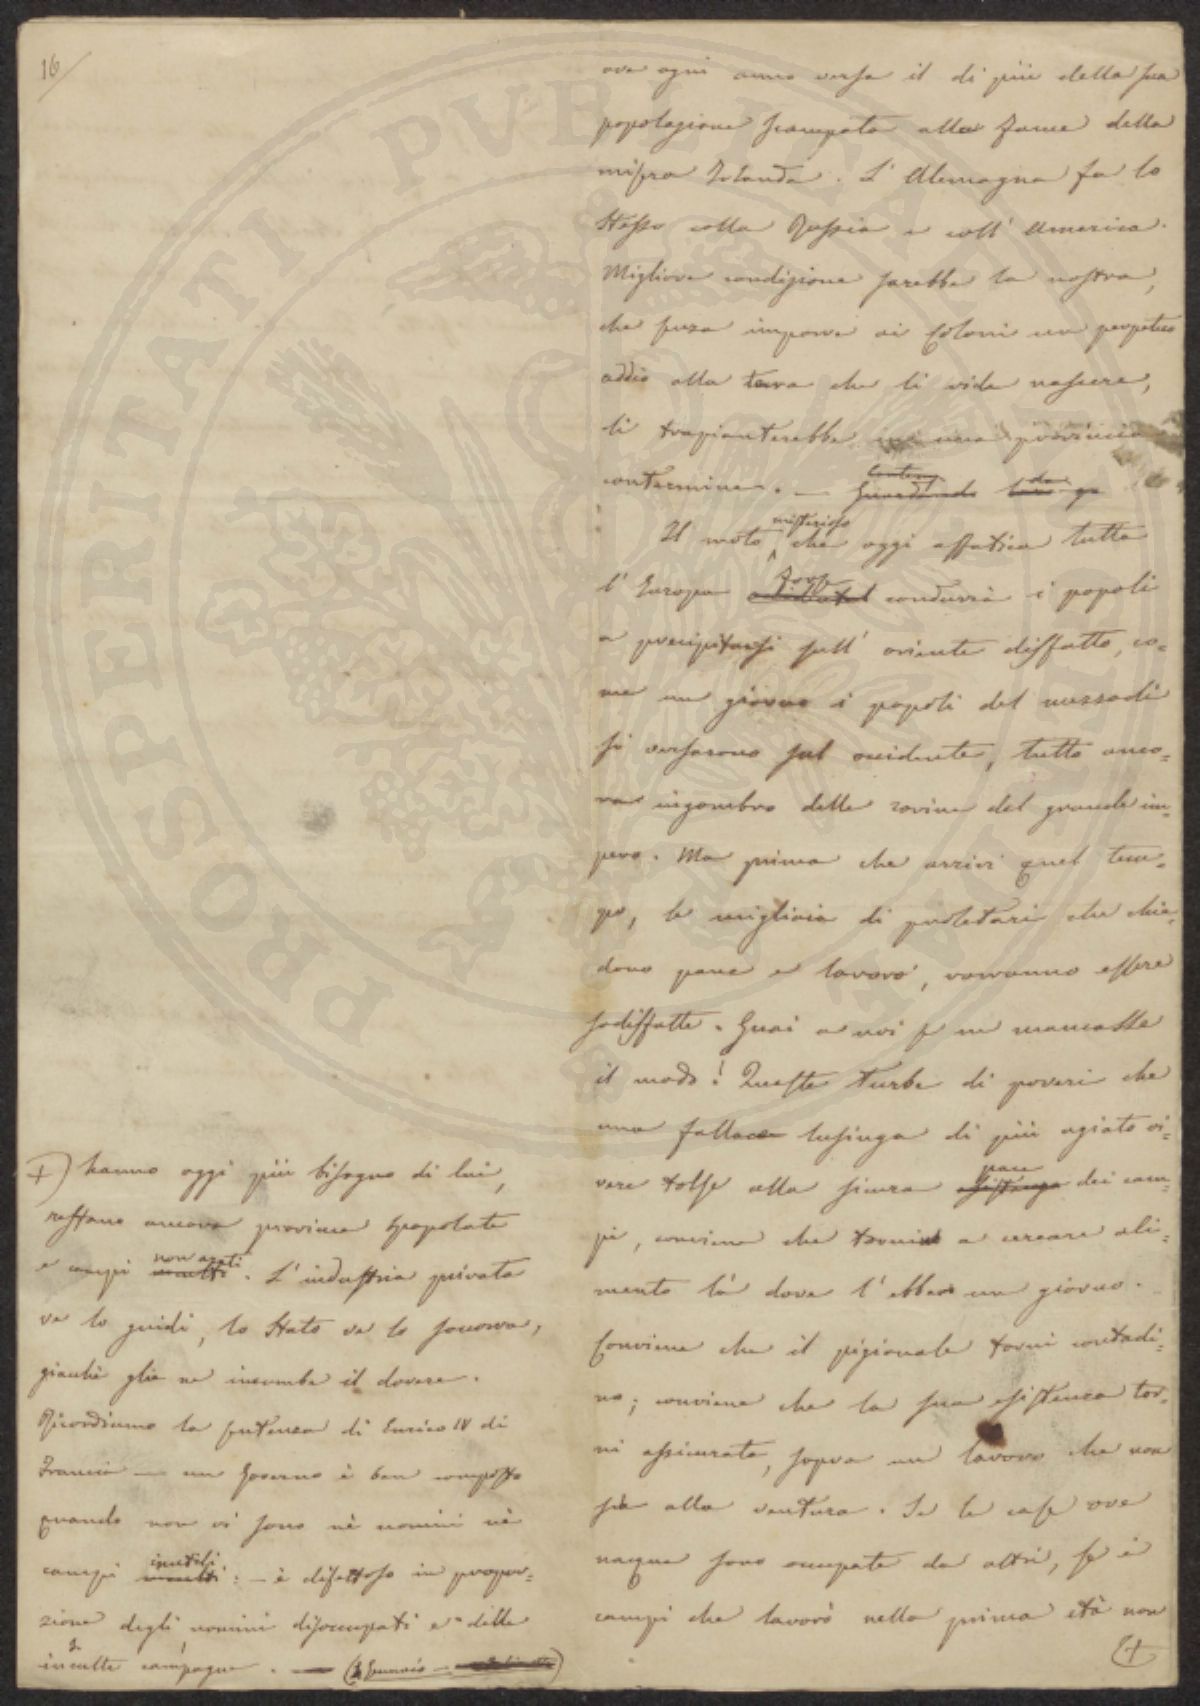 16
ove ogni anno versa il di più della sua
popolazione scampata alla fame della
misera Irlanda. L'Alemagna fa lo
stesso colla Russia e coll'America.
Migliore condizione sarebbe la nostra,
che senza imporre ai Coloni un perpetuo
addio alla terra che li vide nascere,
li trapianterebbe in una provincia
contermine. —
Il moto misterioso che oggi affatica tutta
l'Europa forse condurrà i popoli
a precipitarsi sull'oriente disfatto, co=
me un giorno i popoli del
si versarono sul occidente, tutto anco=
ra ingombro delle rovine del grande im=
pero. Ma prima che arrivi quel tem=
po, le migliaia di proletari che chie=
dono pane e lavoro, vorranno essere
sodisfatte. Guai a noi se ne mancasse
il modo! Queste turbe di poveri che
una fallace lusinga di più agiato vi=
vere tolse alla sicura pace dei cam=
pi, conviene che torni a cercare ali=
mento là dove l'ebbe un giorno.
Conviene che il pigionale torni contadi=
no; conviene che la sua esistenza tor=
ni assicurata, sopra un lavoro che non
sia alla ventura. Se le case ove
nacque sono occupate da altri, se i
campi che lavorò nella prima età non
(+
+) hanno oggi più bisogno di lui,
restano ancora provincie spopolate
e campi non arati. L'industria privata
ve lo guidi, lo Stato ve lo soccorra,
giacchè glie ne incombe il dovere.
Ricordiamo la sentenza di Enrico IV di
Francia — un Governo è ben composto
quando non vi sono nè uomini nè
campi inutili: — è difettoso in propor=
zione degli uomini disoccupati e delle
inculte campagne. —